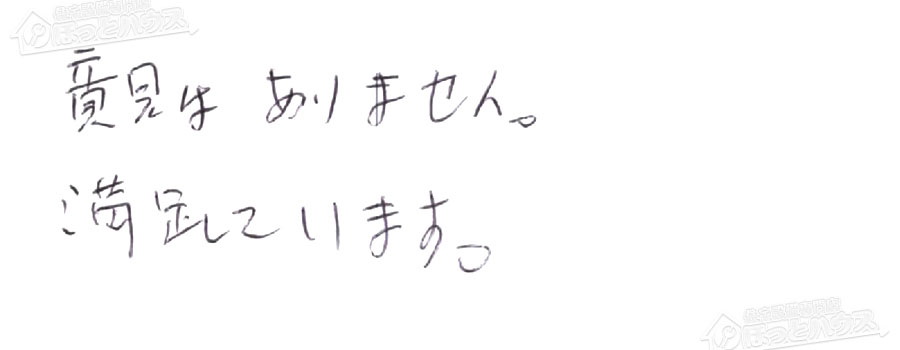 ほっとハウス
意見は ありません。
満足しています。
ほっとハウス